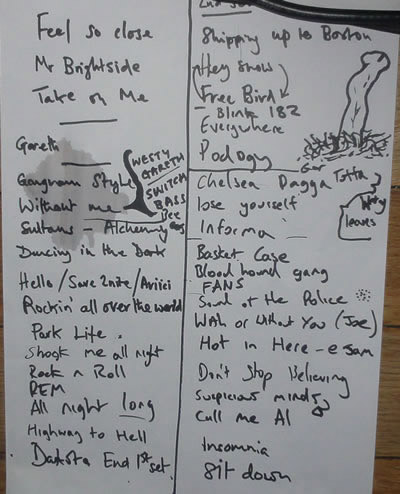 Feel so close
Mr Brightside
Take on Me
Gareth
Gangnam Style
Without me
WESTY
GARETH
SWITCH
BASS
Sultans - Alchemy
Dancing in the Dark
Hello / Save 2nite / Aviici
Rockin' all over the world
Park Life
Shook me all night
Rock n Roll
REM
All night long
Highway to Hell
Dakota End 1st set.
2nd set
Shipping up to Boston
Hey snow
Free Bird
- Blink 182
Everywhere
Podogy
Chelsea Dagga
lose yourself
Informa
leaves
Basket Case
Blood hound gang
FANS
Sound of the Police
With or Without You (Joe)
Hot in Here - e Jam
Don't Stop Believing
Suspicious minds
Call me Al
Insomnia
Sit down